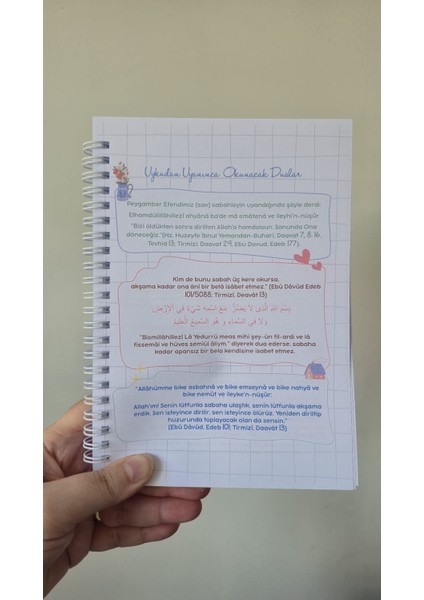 Uykudan Uyanınca Okunacak Dualar
Peygamber Efendimiz (sav) sabahleyin uyandığında şöyle derdi:
Elhamdülillâhillezî ahyânâ ba'de mâ emâtenâ ve ileyhi'n-nüşûr
"Bizi öldükten sonra dirilten Allah'a hamdolsun. Sonunda O'na
döneceğiz."(Hz. Huzeyfe İbnu'l-Yemandan-Buhari, Daavat 7, 8, 16,
Tevhid 13; Tirmizi, Daavat 29, Ebu Davud, Edeb 177).
Kim de bunu sabah üç kere okursa,
akşama kadar ona âni bir belâ isâbet etmez." (Ebû Dâvûd Edeb
101/5088; Tirmizî, Daavât 13)
بِسْمِ اللهِ الَّذِى لاَ يَضُرُّ مَعَ اسْمِهِ شَيْءٌ فِي اْلاَرْضِ
وَلاَ فِي السَّمَاءِ وَ هُوَ السَّمِيعُ الْعَلِيمُ
"Bismillâhillezî Lâ Yedurrü meas mihî şey-ün fil-ardi ve lâ
fissemâi ve hüves semiûl âliym." diyerek dua ederse, sabaha
kadar apansız bir bela kendisine isabet etmez.
"Allâhümme bike asbahnâ ve bike emseynâ ve bike nahyâ ve
bike nemût ve ileyke'n-nüşûr:
Allah'ım! Senin lütfunla sabaha ulaştık, senin lütfunla akşama
erdik. Sen isteyince dirilir, sen isteyince ölürüz. Yeniden diriltip
huzurunda toplayacak olan da sensin."
(Ebû Dâvûd, Edeb 101; Tirmizî, Daavât 13)